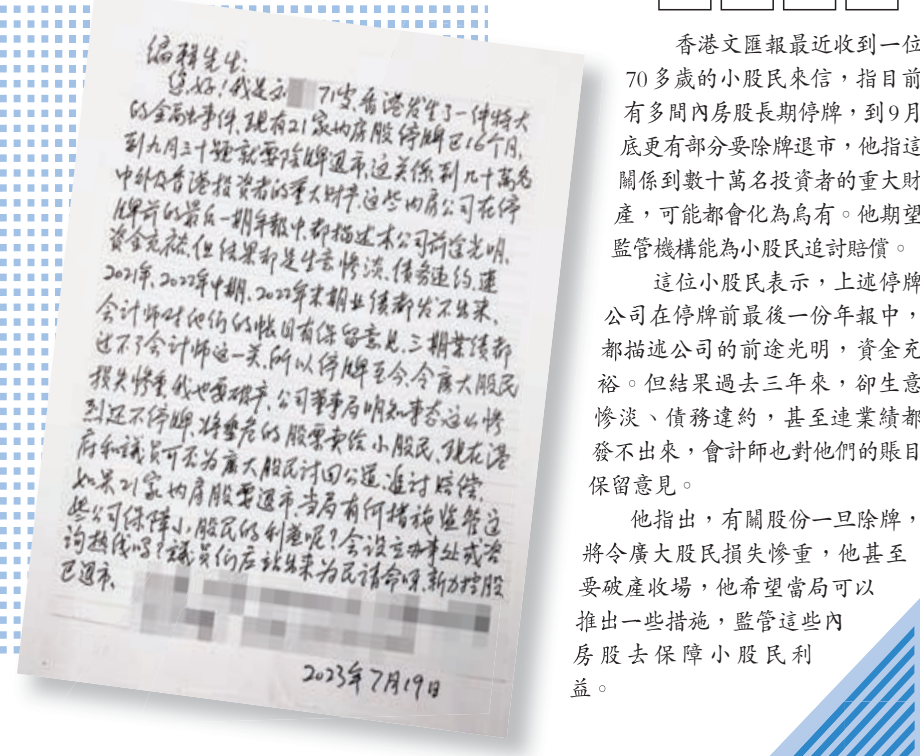 编辑先生:
您好!我是刘 71岁,香港发生了一件特大
的金融事件,现有21家内房股停牌已16个月,
到九月三十號就要除牌退市,这关係到几十萬名
中外及香港投資者的重大财产,这些内房公司在停
牌前的最后一期年報中,都描述本公司前途光明,
资金充裕,但结果却是生意惨淡、债务违约,連
2021年、2022年中期、2022年末期业绩都发不出来,
会计师对他们的帐目有保留意见,三期業績都
过不了会计师这一关,所以停牌至今,令廣大股民
损失惨重,我也要破产,公司董事局明知事态这么惨
到还不停牌,将垫危的股票卖给小股民,现在港
府和議員可否为廣大股民讨回公道,追讨赔偿,
如果21家内房股要退市,当局有何措施监管这
些公司保障小股民的利益呢?会设立办事处或咨
询热线吗?議員们应站出来为民请命呀,新力控股
已退市,
2023年7月19日
香港文匯報最近收到一位
70多歲的小股民來信,指目前
有多間內房股長期停牌,到9月
底更有部分要除牌退市,他指這
關係到數十萬名投資者的重大財
產,可能都會化為烏有。他期望
監管機構能為小股民追討賠償。
這位小股民表示,上述停牌
公司在停牌前最後一份年報中,
都描述公司的前途光明,資金充
裕。但結果過去三年來,卻生意
慘淡、債務違約,甚至連業績都
發不出來,會計師也對他們的賬目
保留意見。
他指出,有關股份一旦除牌,
將令廣大股民損失慘重,他甚至
要破產收場,他希望當局可以
推出一些措施,監管這些內
房股去保障小股民利
益。